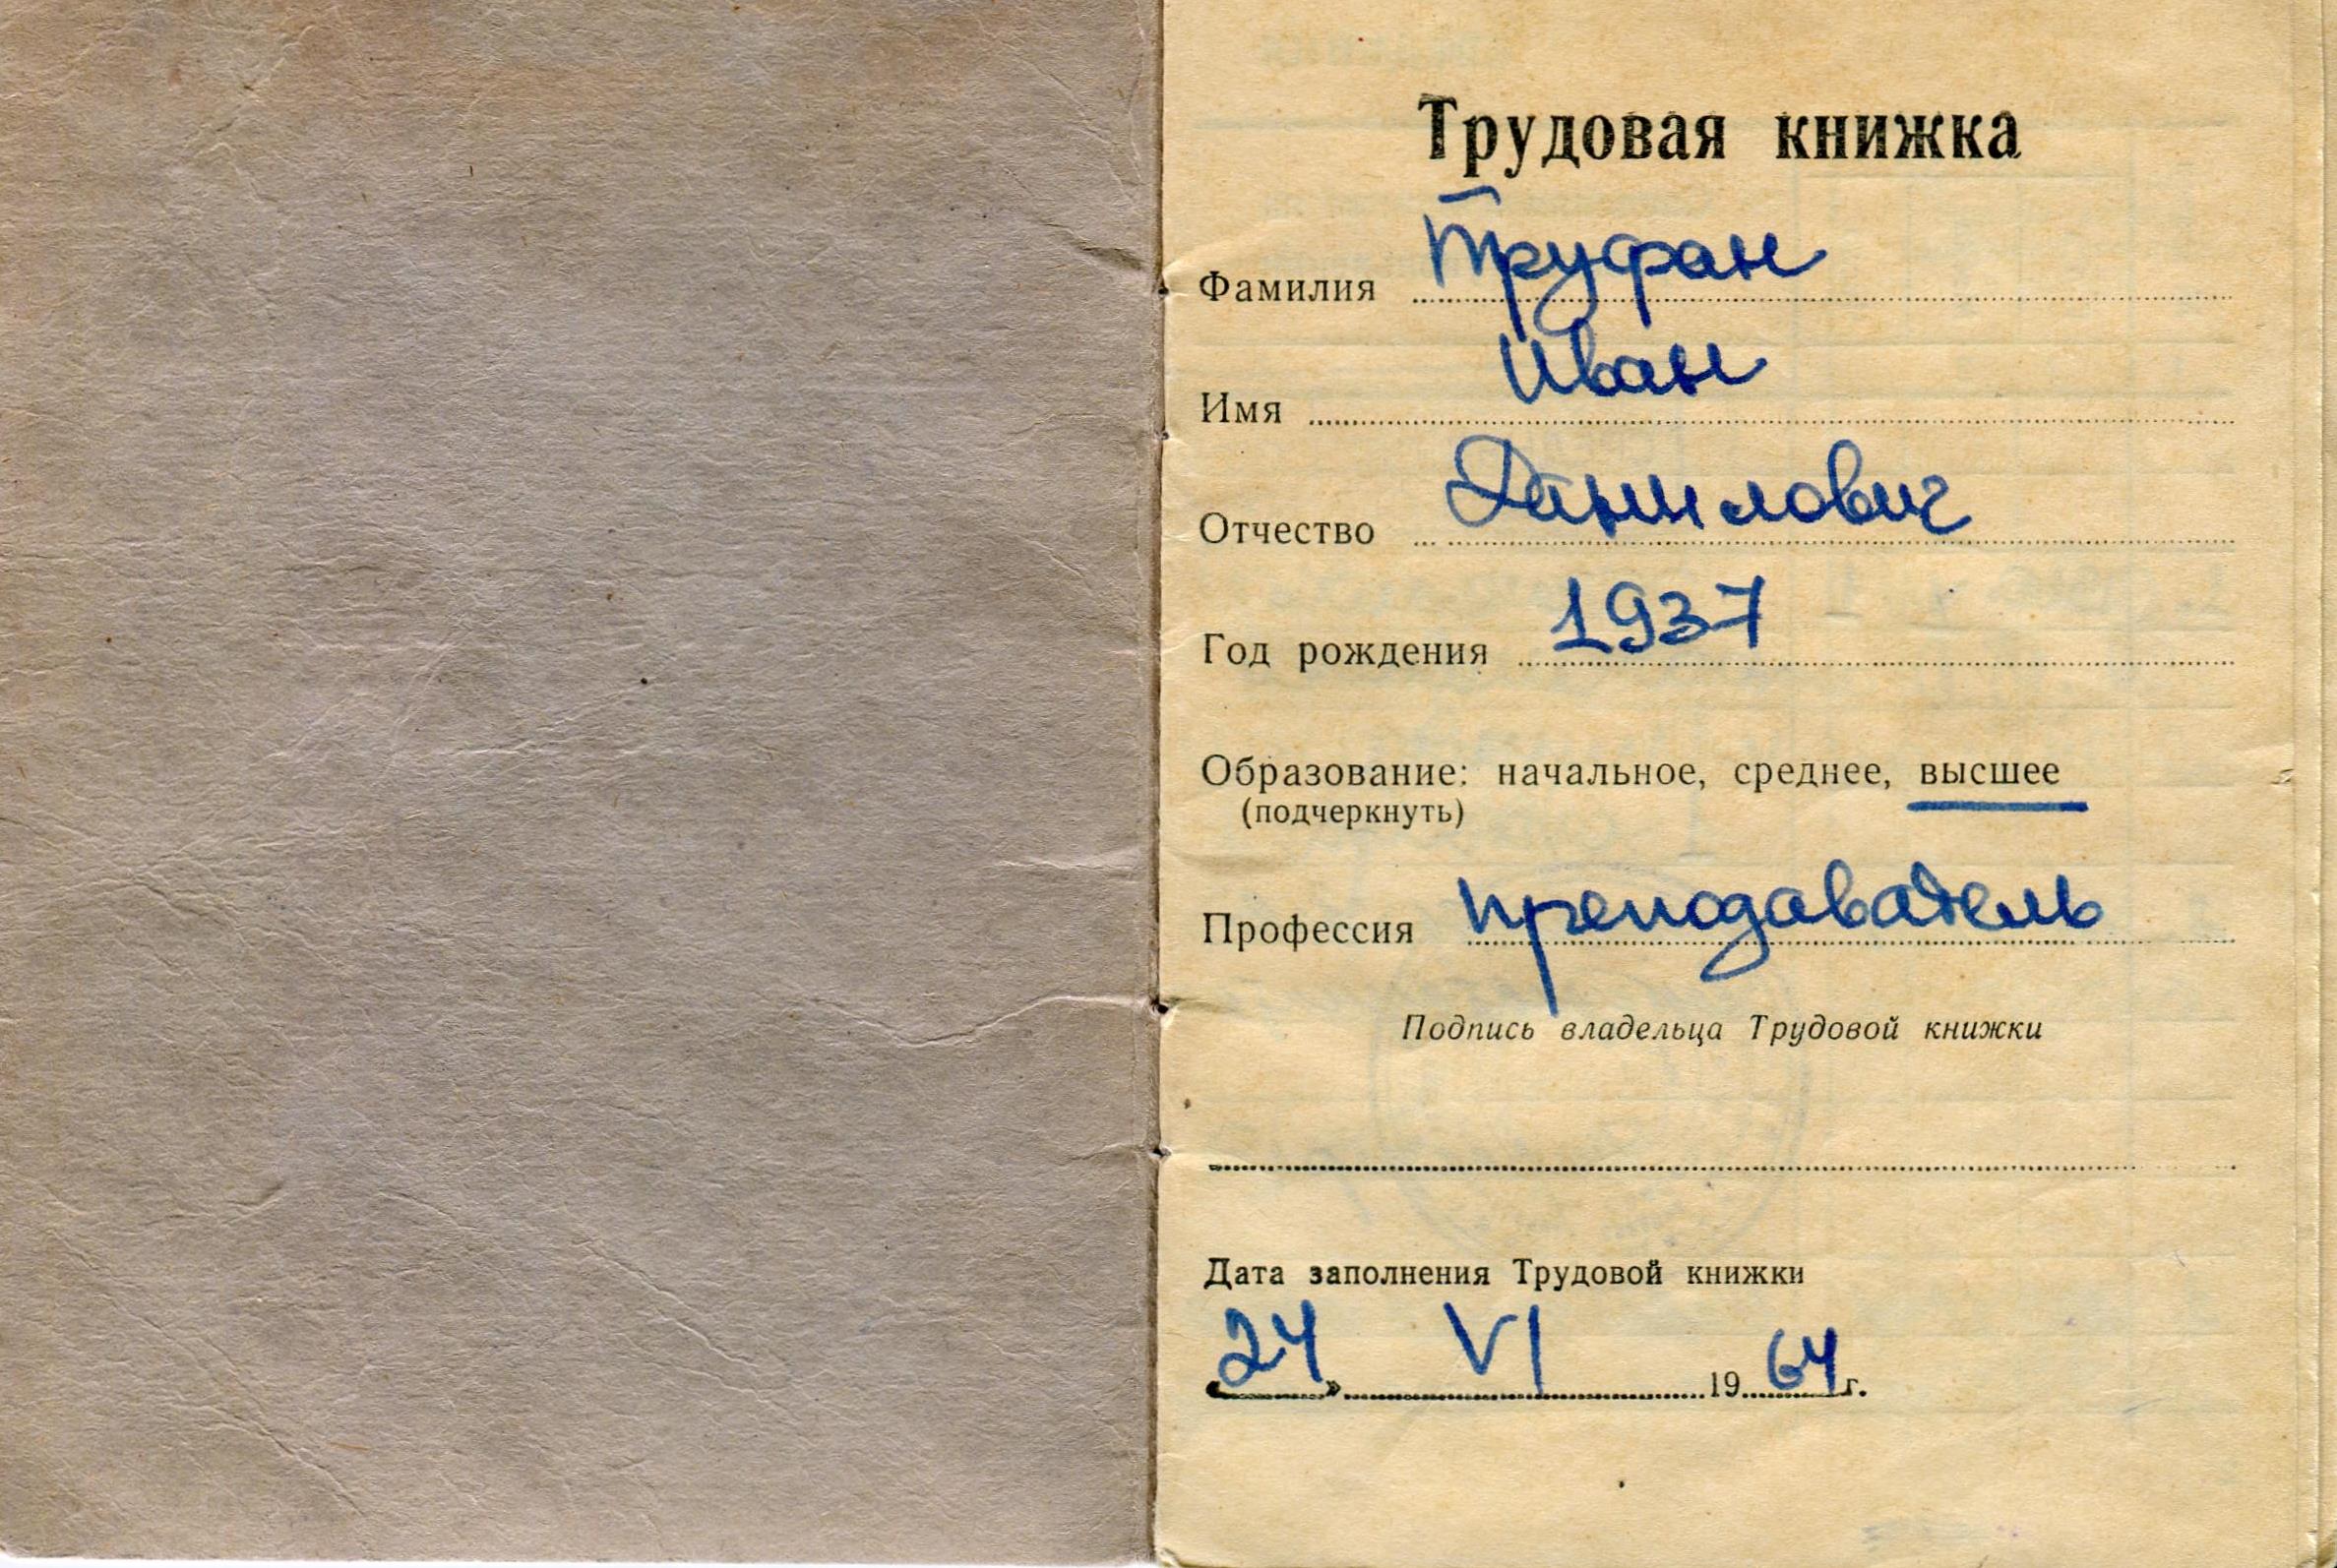 Трудовая книжка
Фамилия Труфан
Имя Иван
Отчество Данилович
Год рождения 1937
Образование: начальное, среднее, высшее
(подчеркнуть)
Профессия преподаватель
Подпись владельца Трудовой книжки
Дата заполнения Трудовой книжки
«24» VI 1964 г.